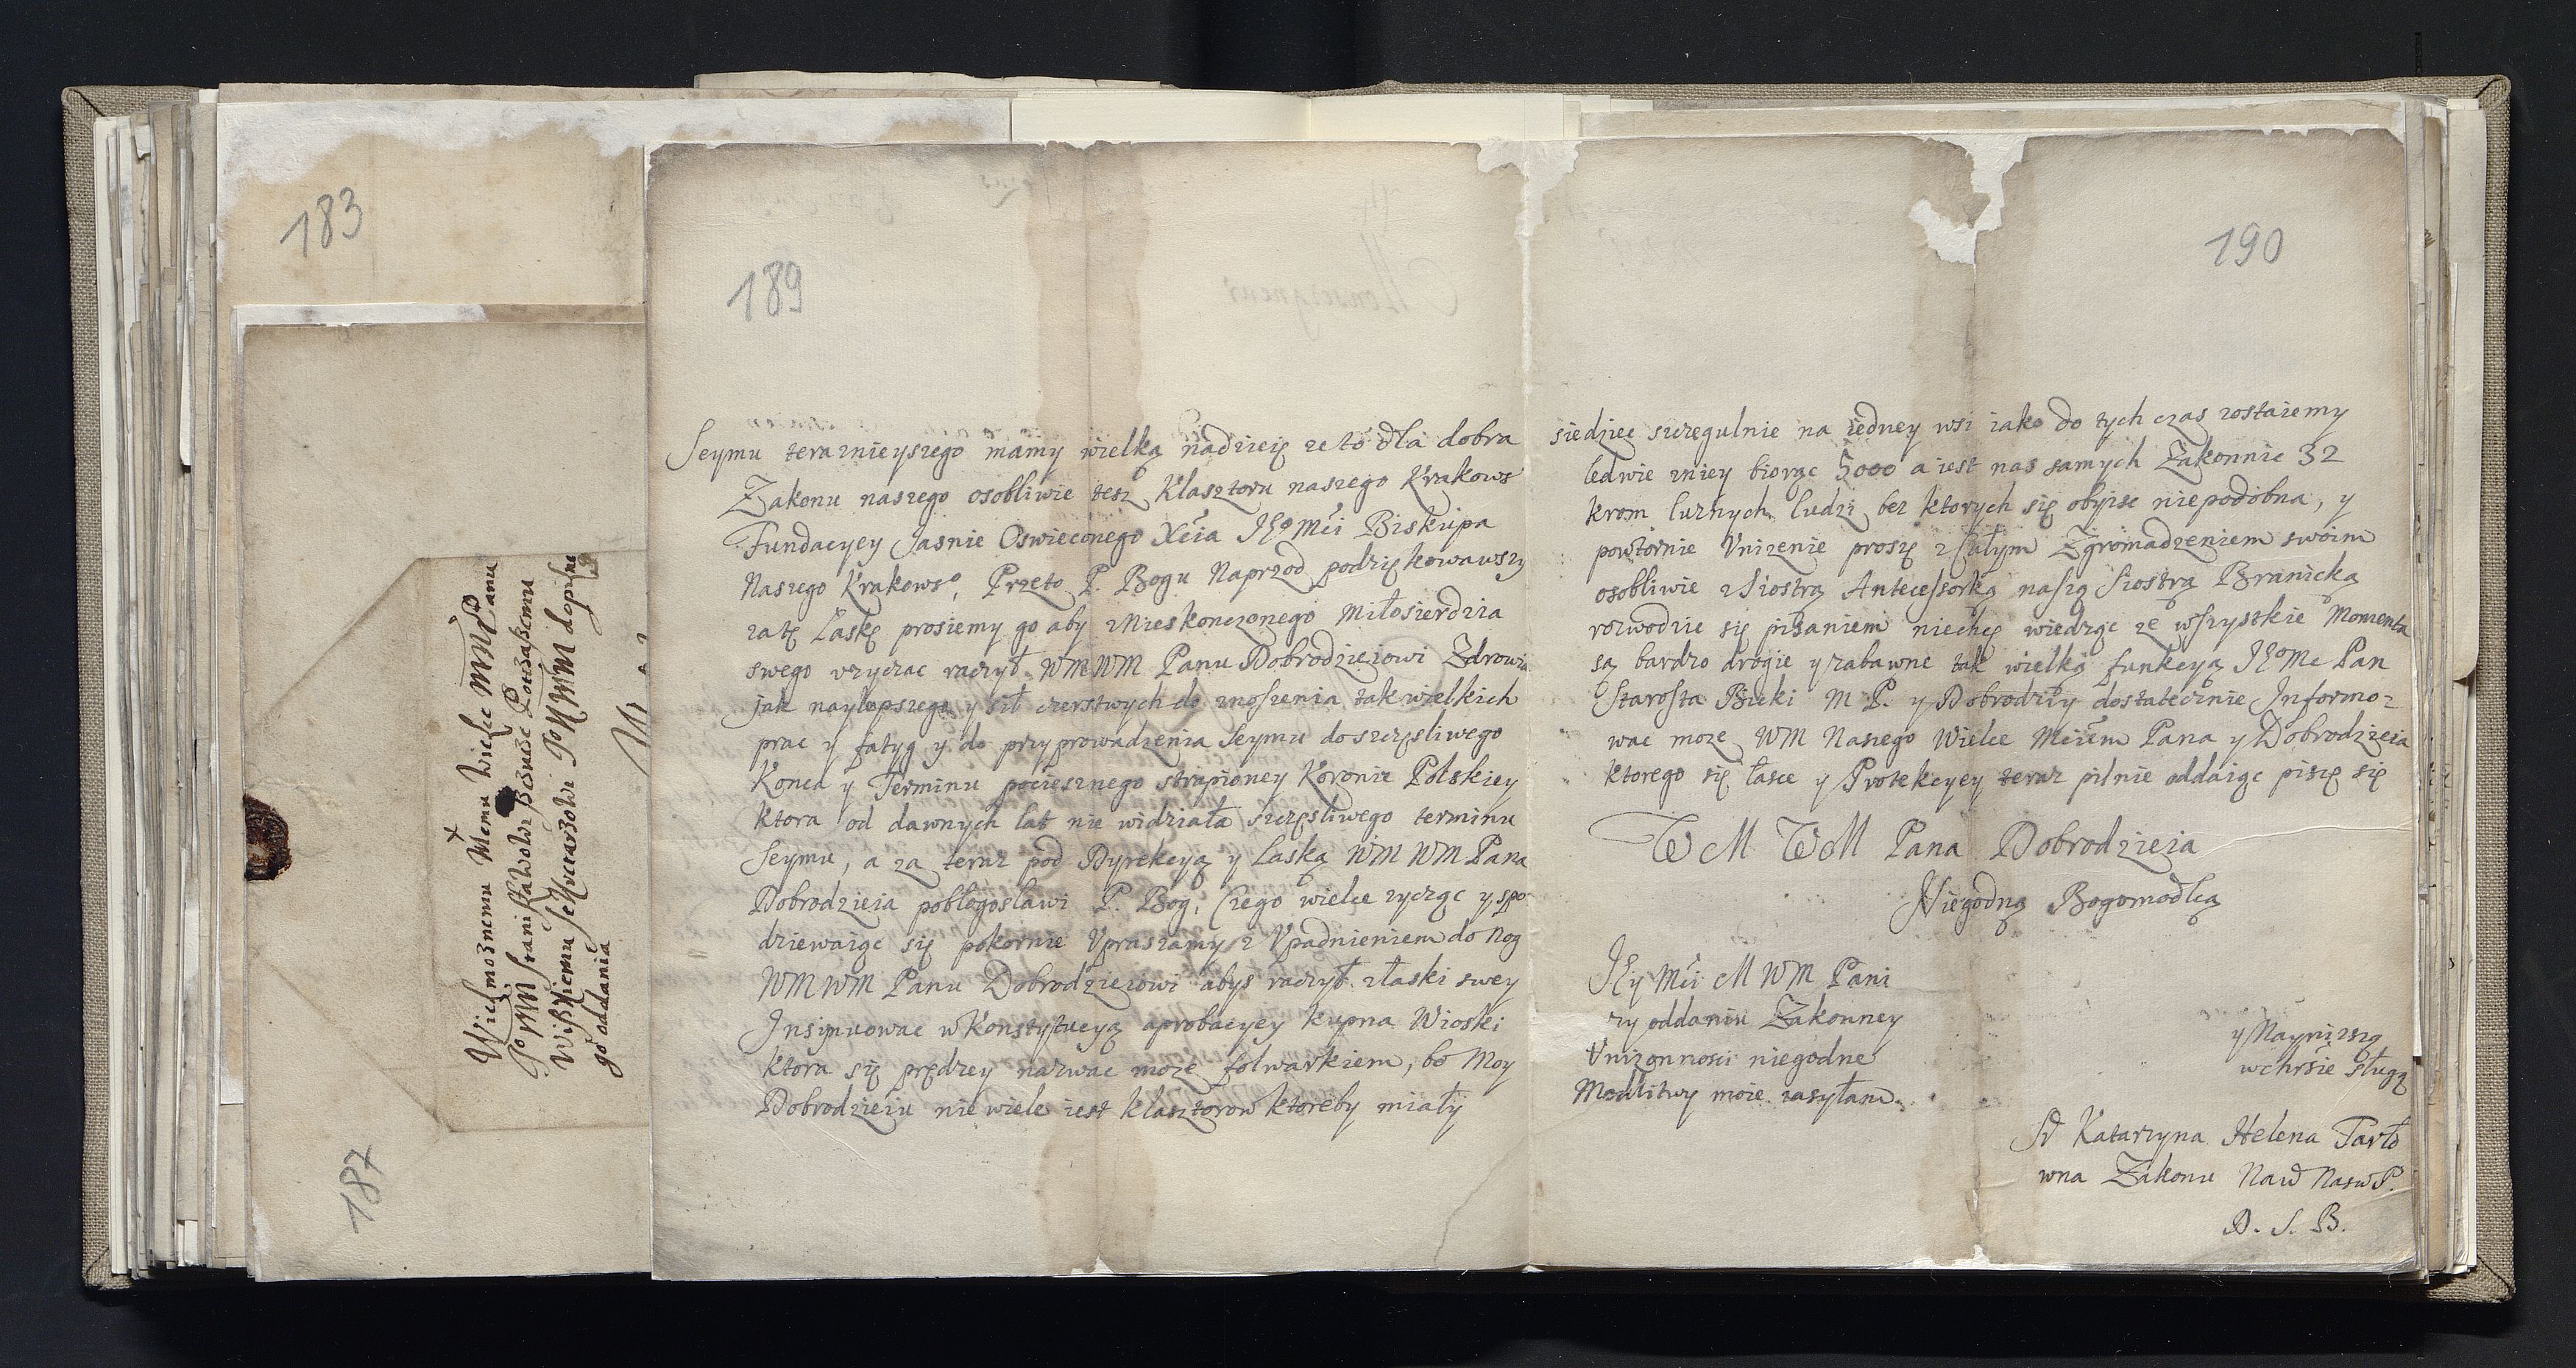 183
Wielmoznemu Memu Wielce MMPanu
187
189
Seymu teraznieyszego mamy wielką nadzieię ze to dla dobra
Zakonu naszego osobliwie tesz Klasztoru naszego Krakows
Fundacyey Jasnie Oswieconego Xcia JEoMci Biskupa
Naszego Krakowso, Przeto P. Bogu Naprzod podziękowawszy
zatę Laskę prosiemy go aby z Nieskonczonego Miłosierdzia
swego vzyczac raczył WMWM Panu Dobrodzieiowi Zdrowia
jak naylepszego y sił czerstwych do znoszenia tak wielkich
prac y fatyg y do przyprowadzenia Seymu do szczęsliwego
Konca y Terminu pociesznego strapioney Koronie Polskiey
ktora od dawnych lat nie widziała szczęsliwego terminu
Seymu, a za teraz pod Dyrekcyą y Laską WM WM Pana
Dobrodzieia pobłogosławi P. Bog, Czego wielce zycząc y spo
dziewaiąc się pokornie Vpraszamy z Vpadnieniem do Nog
WM WM Panu Dobrodzieiowi abys raczył złaski swey
Insynuowac w Konstytucyą aprobacyey kupna Wioski
ktora się prędzey nazwac moze folwarkiem, bo Moy
Dobrodzieiu nie wiele iest klasztorow ktoreby miały
190
siedziec szczegulnie na iedney wsi iako do tych czas zostaiemy
ledwie zniey biorąc 5000 a iest nas samych Zakonnic 32
krom luznych ludzi bez ktorych się obyisc niepodobna, y
powtornie Vnizenie proszę z Całym Zgromadzeniem swoim
osobliwie z Siostrą Antecessorką naszą Siostrą Branicką
rozwodzic się pisaniem niechcę wiedząc ze wszystkie Momenta
są bardzo drogie y zabawne tak wielką funkcyą JEoMc Pan
Starosta Bucki M P. y Dobrodziy dostatecznie Informo-
wac moze WM Naszego Wielce Mciwm Pana y Dobrodzieia
ktorego się łasce y Protekcyey teraz pilnie oddaiąc piszę się
WM WM Pana Dobrodzieia
Niegodną Bogomodlcą
JEy Mci M WM Pani
zy oddaniu Zakonney
Vnizonnosci niegodne
Modlitwy moie zasyłam.
y Maynizszą
w chrsie sługą
Sr Katarzyna Helena Tarło
wna Zakonu Naw NaswP.
D. S. B.